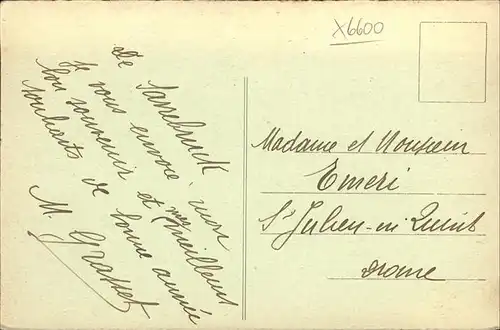 X6600
De Sarrebruck
Je vous envoie mon
bon souvenir et mes meilleurs
souhaits de bonne année
M. Grasset
Madame et Monsieur
Emeri
St Julien-en Quint
Drome